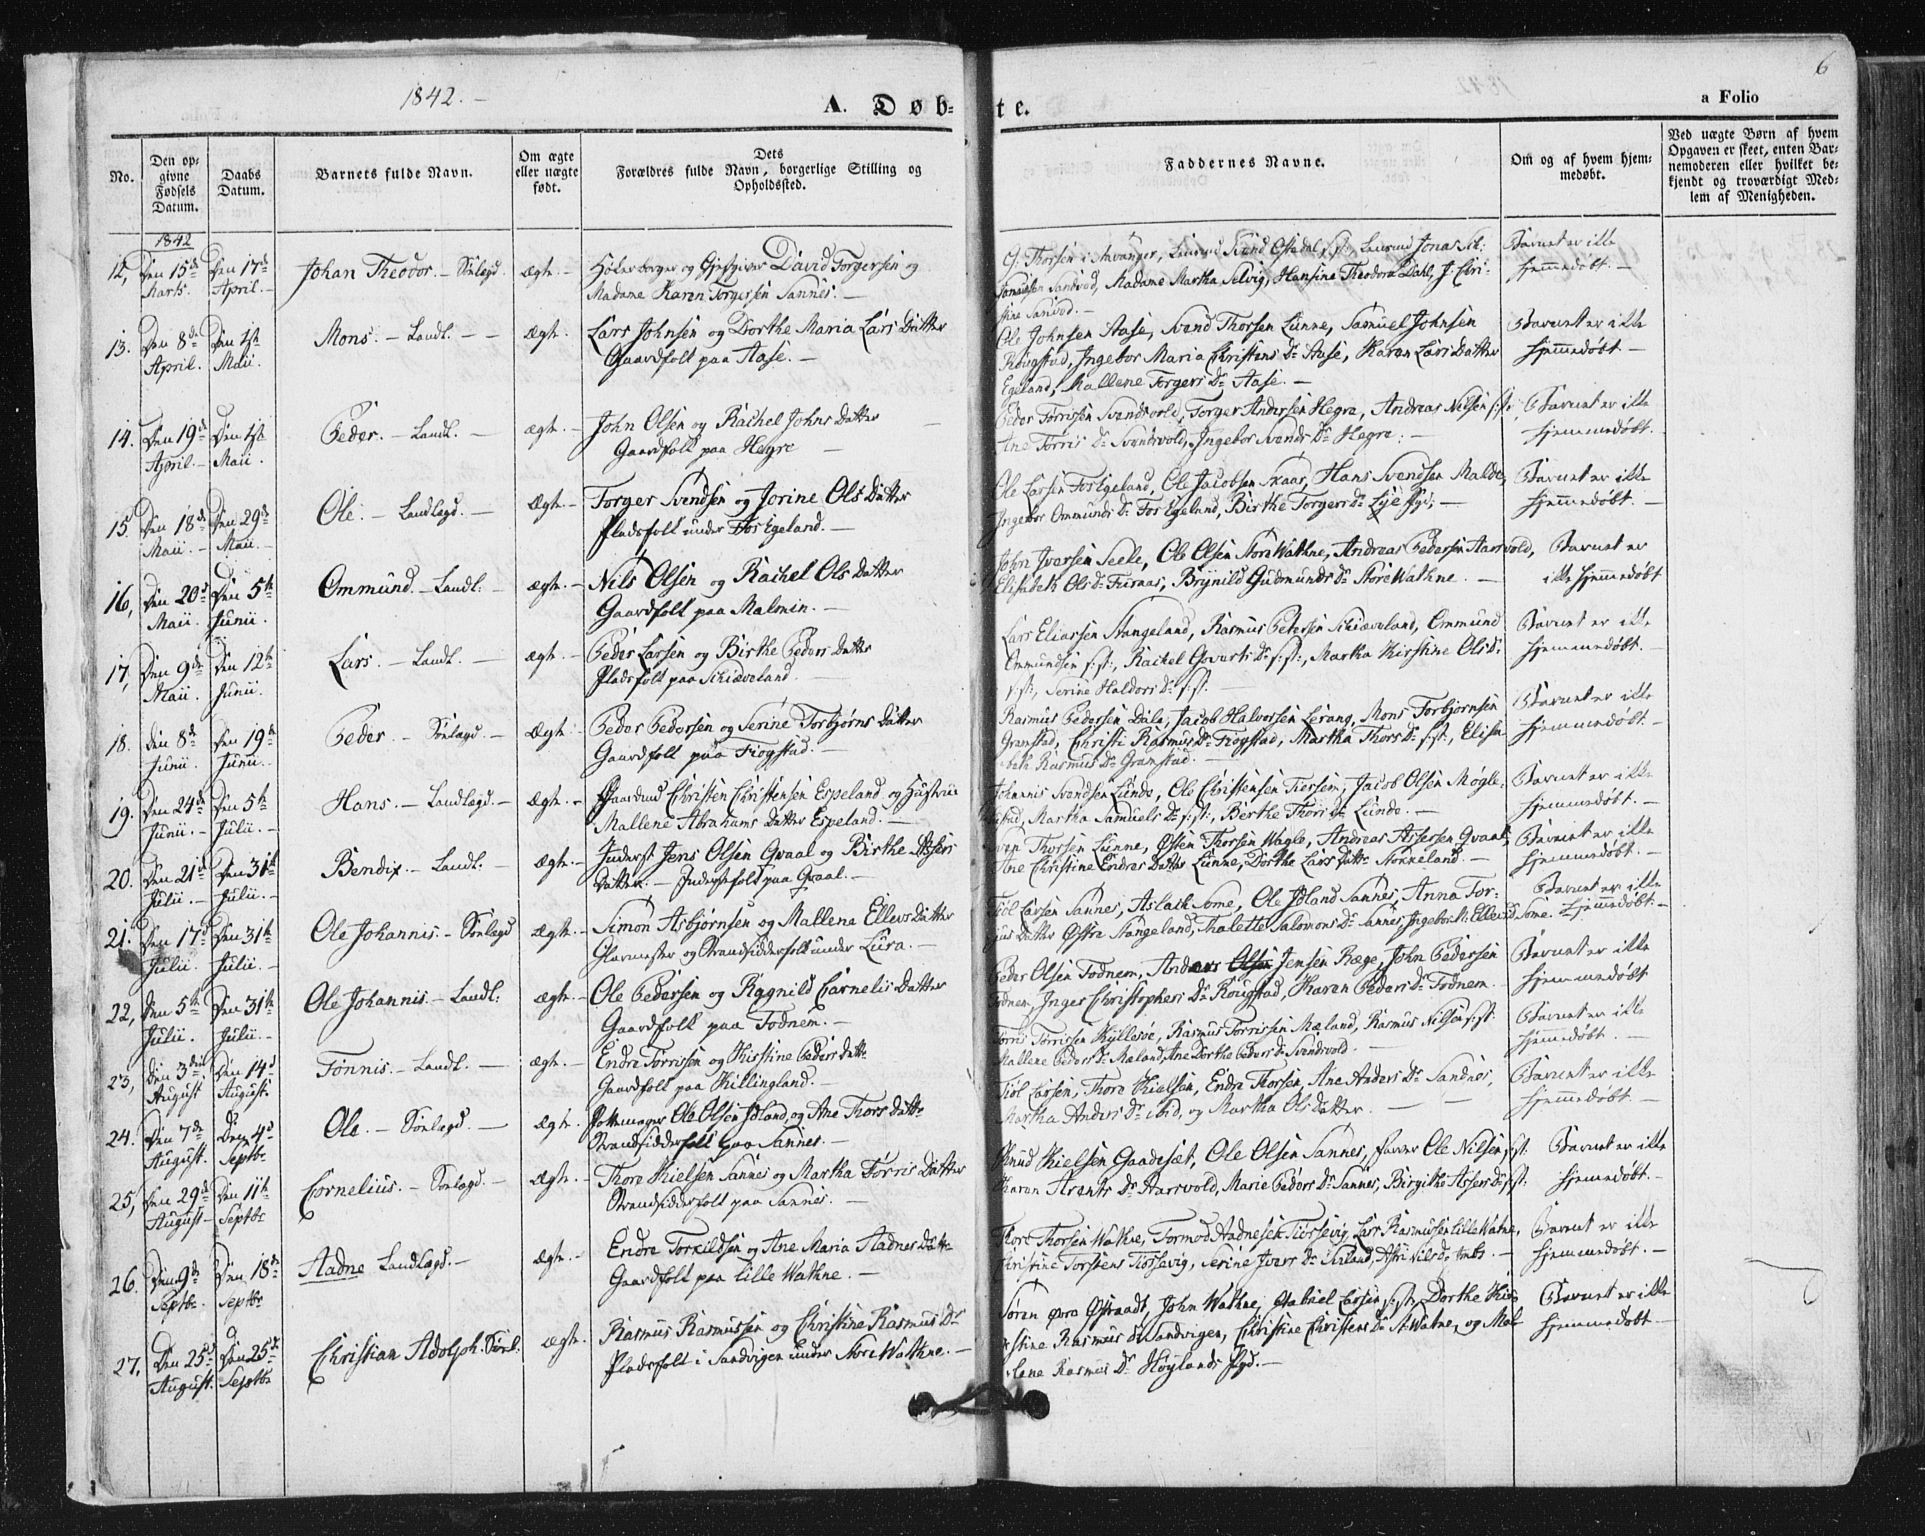 1842.-
A. Døb-
te.
a Folio
6
No.
Den op-
givne
Fødsels
Datum.
Daabs
Datum.
Barnets fulde Navn.
Om ægte
eller uægte
født.
Dets
Forældres fulde Navn, borgerlige Stilling og
Opholdssted.
Faddernes Navne.
Om og af hvem hjem-
medøbt.
Ved uægte Børn af hvem
Opgaven er skeet, enten Bar-
nemoderen eller hvilket be-
kjendt og troværdigt Med-
lem af Menigheden.
1842
12, Den 15de Den 17de Johan Theodor - Sönlagd. ægte - Höker borger og Gjestgiver David Torgersen og
Marts. April. - Madame Karen Torgersen Sannes. -
Thorsen i Stavanger, Svend Jonas
Sandved, Madame Martha Selvig, Hansine Theodora Dahl,
Sandved. -
Barnet er ikke
hjemmedøbt. -
13. Den 8de Den 1ste Mons. - Landl. - - ægte. Lars Johnsen og Dorthe Maria Lars Datter
April. Maii. Gaardfolk paa Aase. -
Ole Johnsen Aase, Svend Thorsen Lunne, Samuel Johnsen
Rougstad, Ingebor Maria Christens Dr Aase, Karen Lars Datter
Egeland, Mallene Torgers Dr Aase. -
Barnet er ikke
hjemmedøbt -
14. Den 19de Den 1ste Peder. - Landl. - ægte. - John Olsen og Rachel Johns Datter
April. - Maii. Gaardfolk paa Hegre -
Peder Torrissen Svendsvold, Torger Andersen Hegre, Andreas Nilsen s:st:
Ane Torris Dr Svendsvold, Ingebor Svends Dr Hegre. -
Barnet er ikke
hjemmedøbt.
15. Den 18de Den 29de Ole. - Landlagd. - ægte - Torger Svendsen og Jorine Ols Datter
Maii. - Maii. - Pladsfolk under Fos Egeland. -
Ole Larsen Fos Egeland, Ole Jacobsen Skaar, Hans Svendsen Malde,
Ingebor Ommunds Dr Fos Egeland, Birthe Torgers Dr Lye -
Barnet er ikke
hjemmedøbt. -
16, Den 20de Den 5te Ommund. - Landl: - ægte. - Nils Olsen og Rachel Ols Datter
Maii. Junii. Gaardfolk paa Malmin. -
John Iversen Seele, Ole Olsen Store Wathne, Andreas Pedersen Aarsvold,
Elisabeth Ols Dr Furaas, Brynild Gudmunds Dr Store Wathne. -
Barnet er
ikke hjemmedøbt
17, Den 9de Den 12te Lars. - Landl. - ægte - Peder Larsen og Birthe Peders Datter
Maii. Junii. Pladsfolk paa Skiæveland. -
Lars Eliassen Stangeland, Rasmus Petersen Skiæveland, Ommund
Ommundsen s:st:, Rachel Goverts Dr s:st:, Martha Kirstine Ols Dr
s:st:, Serine Haldors Dr s:st: -
Barnet er ikke
hjemmedøbt. -
18. Den 8de Den 19de Peder. - Sönlagd. - ægte - Peder Pedersen og Serine Torbjørns Datter
Junii. Junii. - Gaardfolk paa Frøgstad. -
Rasmus Pedersen Dale, Jacob Halvorsen Lerang, Mons Torbjørnsen
Gramstad, Christi Rasmus Dr Frøgstad, Martha Thors Dr s:st:, Elisa
beth Rasmus Dr Gramstad. -
Barnet er ikke
hjemmedøbt. -
19. Den 24de Den 5te Hans. - Landlagd. - ægte. - Gaardmd Christen Christensen Espeland og Hustrue
Junii. - Julii. - Mallene Abrahams Datter Espeland. -
Johannis Svendsen Lunde, Ole Christensen Tiossem, Jacob Olsen Mögle-
Martha Samuels Dr s:st:, Berthe Thors Dr Lunde. -
Barnet er ikke
hjemmedøbt. -
20. Den 21de Den 31te Bendix. - Landl. - ægte. - Inderst Jens Olsen Qvaal og Birthe Assers
Julii. - Julii. - Datter. - Inderstfolk paa Qvaal. -
Thorsen Lunne, Østen Thorsen Wagle, Andreas Assersen Qvaal,
Ane Christine Endres Datter Lunne, Dorthe Lars Datter Stokkeland. -
Barnet er ikke
hjemmedøbt. -
21. Den 17de Den 31te Ole Johannis. - Sönlagd ægte. - Simon Asbjørnsen og Mallene Ellevs Datter
Julii. Julii. - Glarmester og Strandsidderfolk under Lura. -
Larsen Sannes, Aslack Some, Ole Idland Sannes, Anna Tor-
Datter Østre Stangeland, Thalette Salomons Dr Sannes, Ingebor Ellevs Dr Some.
Barnet er ikke
hjemmedøbt. -
22, Den 5te Den 31te Ole Johannis. - Landl: ægte - Ole Pedersen og Ragnild Cornelis Datter
Julii. Julii. - Gaardfolk paa Fodnem. -
Peder Olsen Fodnem, Anders Olsen Jensen Ræge, John Pedersen
Fodnem, Inger Christophers Dr Rougstad, Karen Peders Dr Fodnem.
Barnet er ikke
hjemmedøbt
23, Den 3die Den 14de Tönnis. - Landl. - ægte. - Endre Torrissen og Kirstine Peders Datter
August August. Gaardfolk paa Killingland. -
Torris Torrissen Kyllesøe, Rasmus Torrissen Mæland, Rasmus Nilsen s:st:
Mallene Peders Dr Mæland, Ane Dorthe Peders Dr Svendsvold. -
Barnet er ikke
hjemmedøbt. -
24. Den 7de Den 4de Ole. - Sönlagd. - ægte - Pottemager Ole Olsen Idland, og Ane Thors Datter
August. Septbr Strandsidderfolk paa Sannes. -
Larsen, Thore Kielsen, Endre Thorsen, Ane Anders Dr Sandnes,
Martha Anders Dr ibid, og Martha Ols Datter. - -
Barnet er ikke
hjemmedøbt. -
25, Den 29de Den 11te Cornelius. - Sönlagd. - ægte. - Thore Kielsen Sannes og Martha Torris Datter
August - Septbr Strandsidderfolk paa Sannes. -
Knud Kielsen Gaadesæt, Ole Olsen Sannes, Farver Ole Nilsen s:st:
Karen Arents Dr Aarsvold, Marie Peders Dr Sannes, Birgithe Assers Dr s:st:
Barnet er ikke
hjemmedøbt. -
26. Den 9de Den 18de Aadne Landlagd. - ægte. - Endre Torkildsen og Ane Maria Aadnes Datter
Septbr. Septbr Gaardfolk paa Lille Wathne. -
Thore Thorsen Wathne, Tormod Aadnesen Tiössevig, Lars Rasmussen Lille Watne,
Christine Torstens Tiössevig, Serine Ivers Dr -
Barnet er ikke
hjemmedøbt. -
27, Den 25de Den 25de Christian Adolph. Sönl. ægte. - Rasmus Rasmussen og Christine Rasmus Dr
August. Septbr Pladsfolk i Sandvigen under Store Wathne. -
Sören øvre Østraadt, John Wathne, Gabriel Larsen s:st:, Dorthe
stine Rasmus Dr Sandvigen, Christine Christens Dr St. Watne, og Mal
lene Rasmus Dr Höylands -
Barnet er ikke
hjemmedøbt -